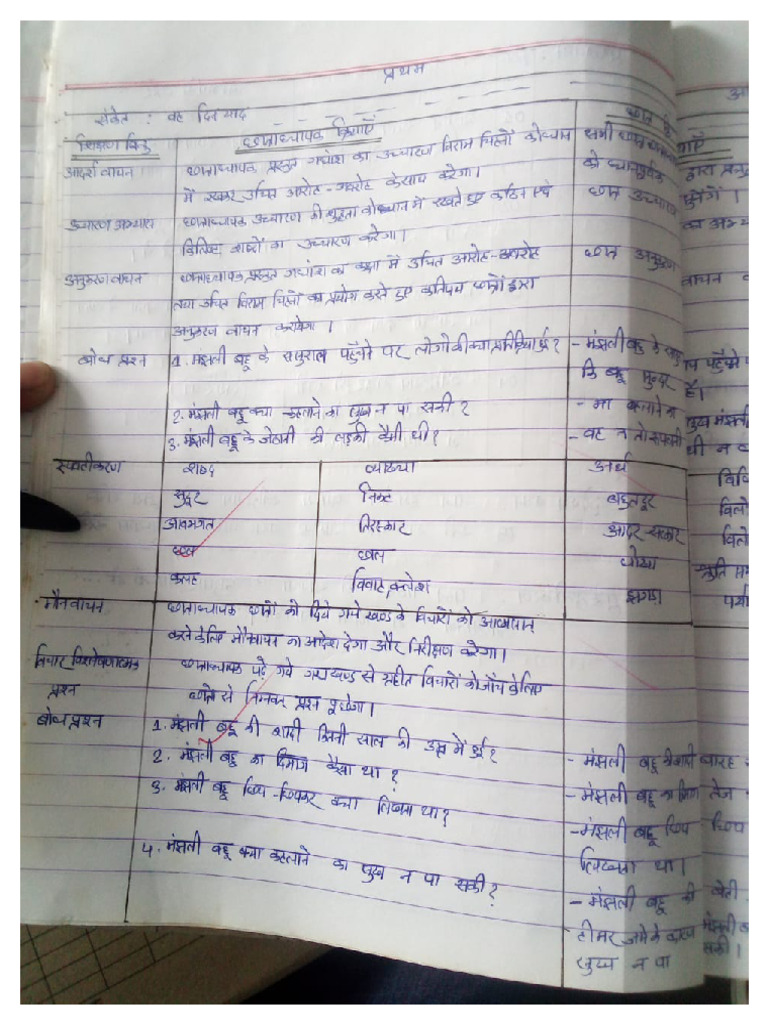 प्रथम
संकेत : वह दिन याद
शिक्षण बिन्दु छात्राध्यापक क्रियाएँ छात्र
आदर्श वाचन छात्राध्यापक प्रस्तुत गद्यांश का उच्चारण विराम चिन्हों को ध्यान सभी छात्र
में रखकर उचित आरोह-अवरोह के साथ करेगा। को ध्यानपूर्वक
उच्चारण अभ्यास छात्राध्यापक उच्चारण की शुद्धता को ध्यान में रखते हुए कठिन एवं छात्र उच्चारण
क्लिष्ट शब्दों का उच्चारण करेगा।
अनुकरण वाचन छात्राध्यापक प्रस्तुत गद्यांश का कक्षा में उचित आरोह-अवरोह छात्र अनुकरण
तथा उचित विराम चिन्हों का प्रयोग करते हुए कतिपय छात्रों द्वारा
अनुकरण वाचन करायेगा।
बोध प्रश्न 1. मंझली बहू के ससुराल पहुँचने पर लोगो की क्या प्रतिक्रिया हुई? - मंझली बहू के
कि बहू सुन्दर है।
2. मंझली बहू क्या कहलाने का सुख न पा सकी? - मा कहलाने का
3. मंझली बहू के जेठानी की लड़की कैसी थी? - वह न तो
स्पष्टीकरण शब्द व्याख्या अर्थ
सुदूर निकट बहुत दूर
आवभगत तिरस्कार आदर सत्कार
छल धोखा
कलह विवाद, क्लेश झगड़ा
मौन वाचन छात्राध्यापक छात्रों को दिये गये खण्ड के विचारों को आत्मसात
करने के लिए मौनवाचन का आदेश देगा और निरीक्षण करेगा।
विचार विश्लेषणात्मक छात्राध्यापक पढ़े गये गद्यखण्ड से ग्रहीत विचारों को जाँच के लिए
प्रश्न छात्रो से निम्नवत प्रश्न पूछेगा।
बोध प्रश्न 1. मंझली बहू की शादी कितनी साल की उम्र में हुई? - मंझली बहू की शादी बारह
2. मंझली बहू का दिमाग कैसा था? - मंझली बहू का दिमाग तेज
3. मंझली बहू छिप-छिपकर क्या लिखती था? - मंझली बहू छिप छिप
लिखती था।
4. मंझली बहू क्या कहलाने का सुख न पा सकी? - मंझली बहू की बेटी
के कारण मंझली
सुख न पा सकी।